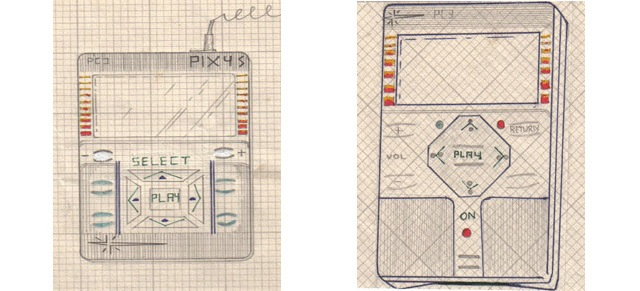 PC3 PIX4S
- +
SELECT
PLAY
PC3
+ RETURN
VOL PLAY
ON